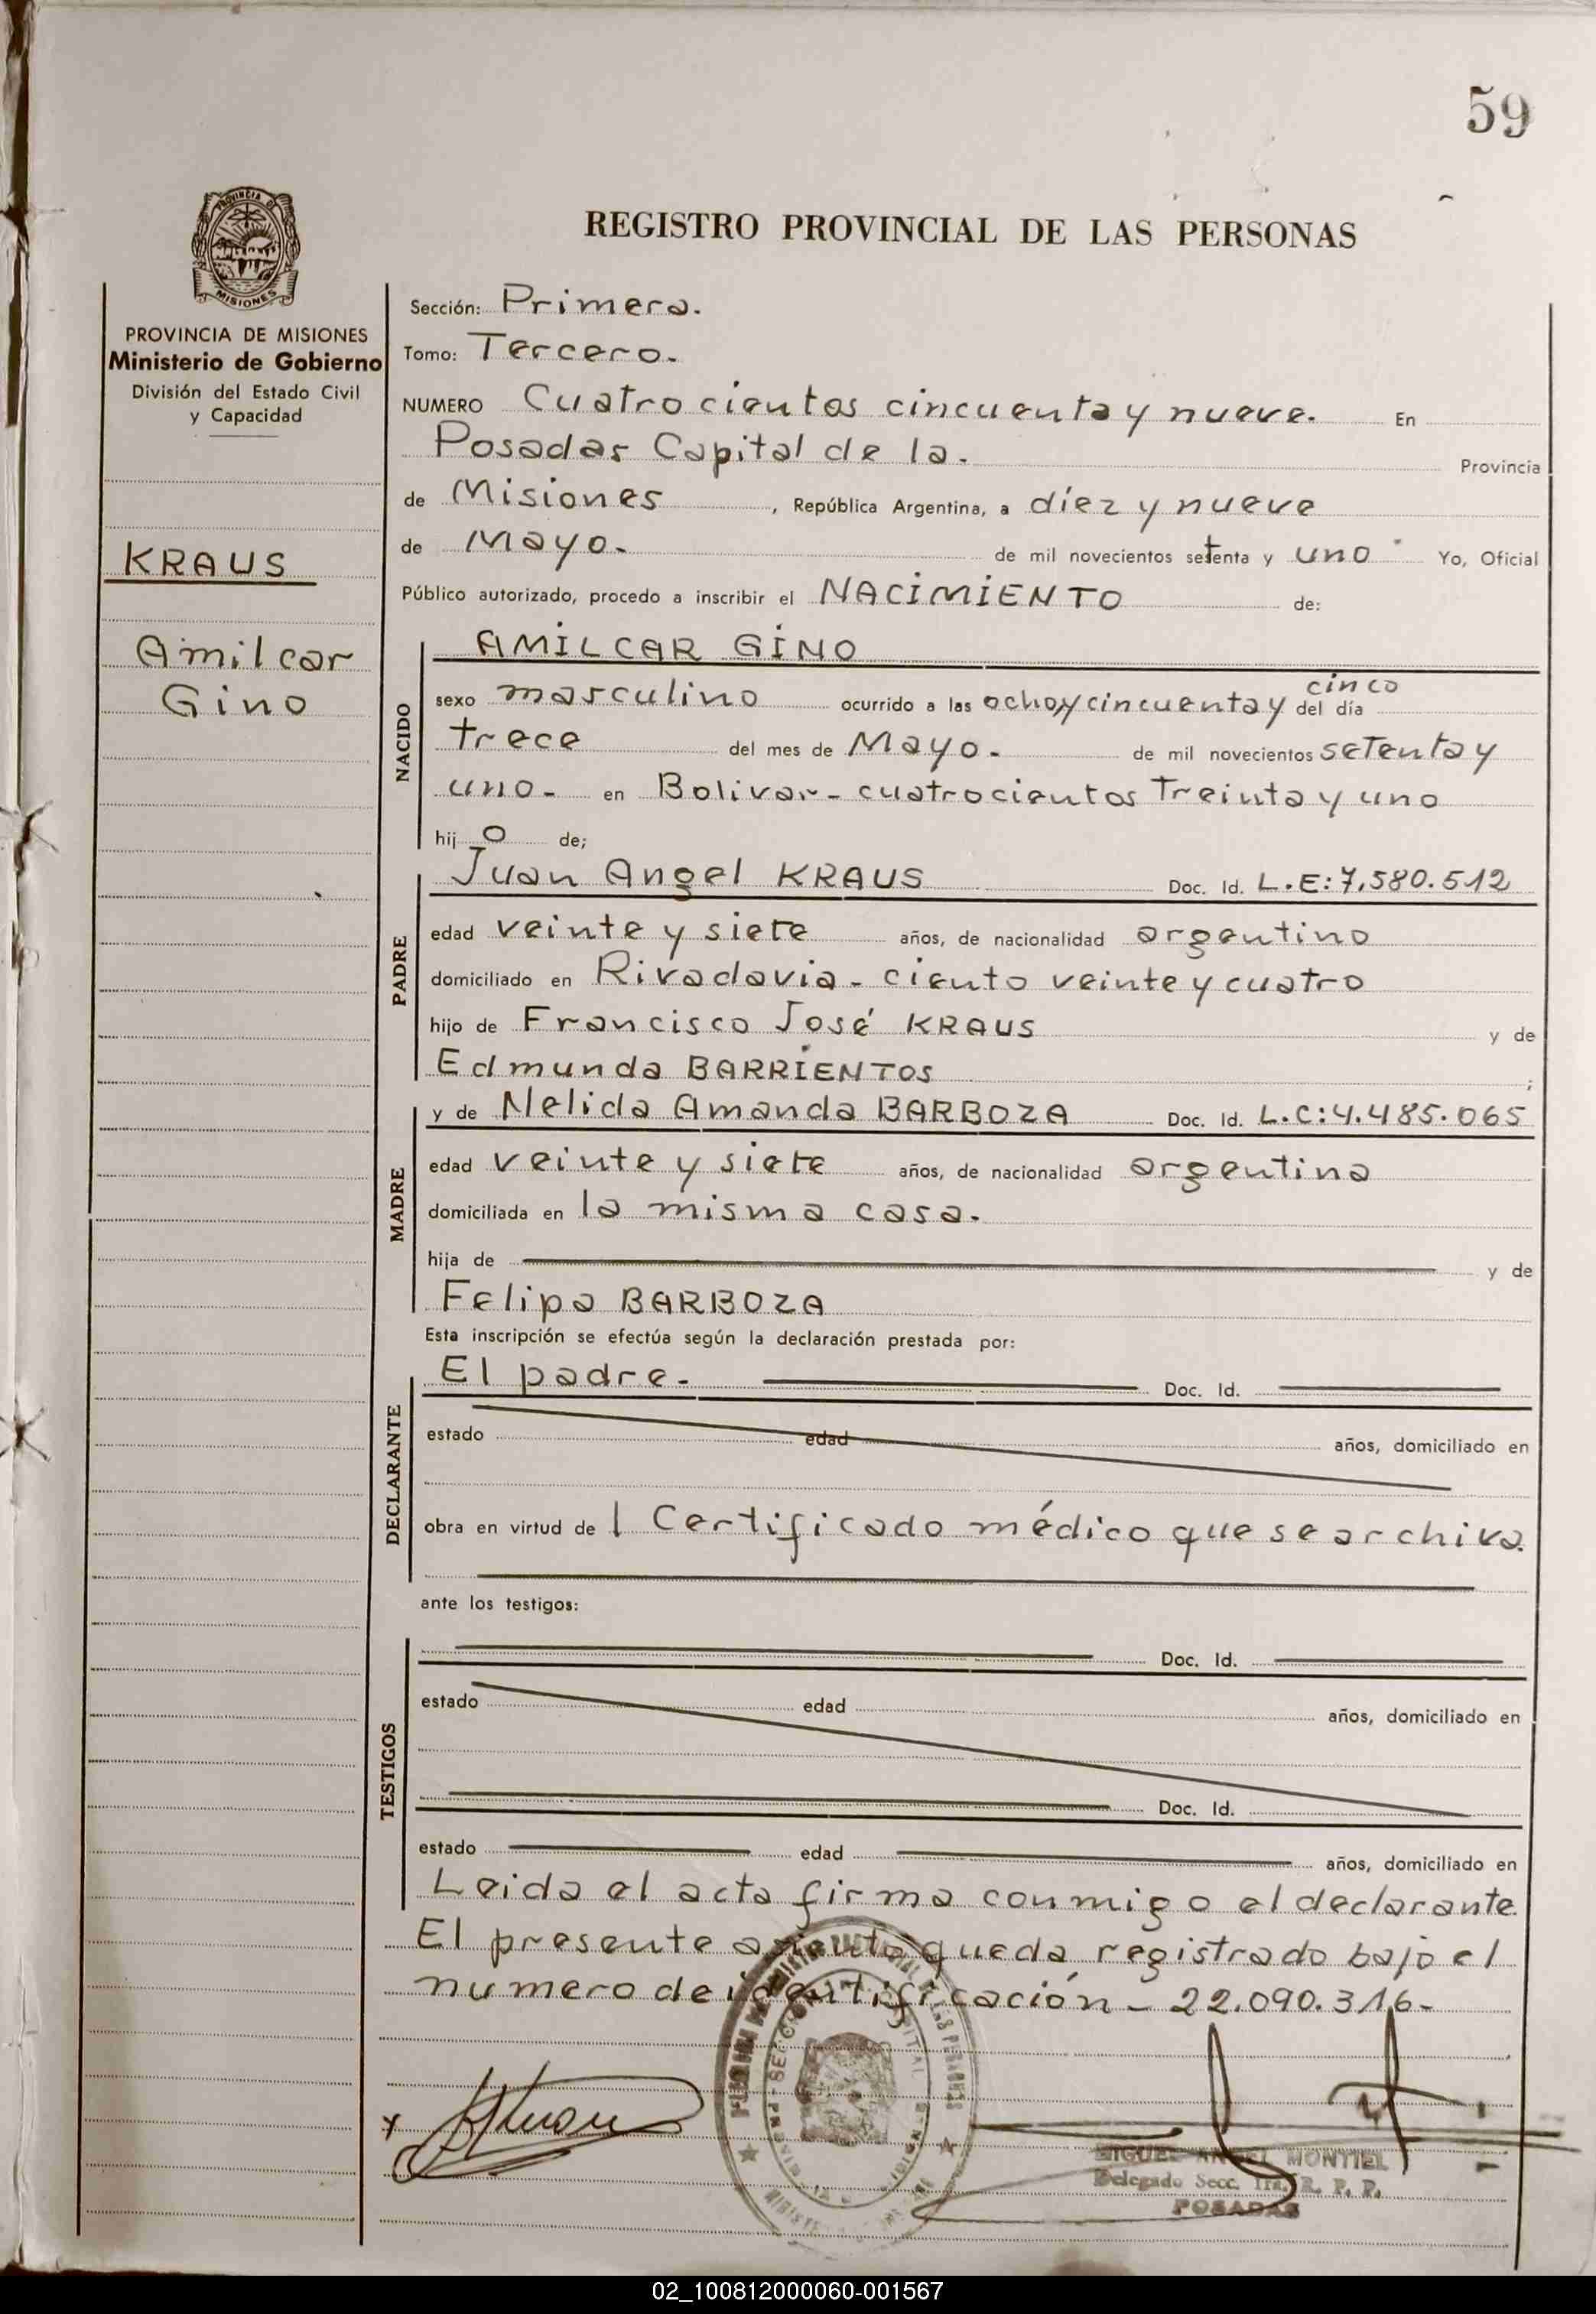 59
PROVINCIA DE
MISIONES
PROVINCIA DE MISIONES
Ministerio de Gobierno
División del Estado Civil
y Capacidad
KRAUS
Amilcar
Gino
REGISTRO PROVINCIAL DE LAS PERSONAS
Sección: Primera.
Tomo: Tercero.
NUMERO Cuatrocientos cincuenta y nueve. En
Posadas Capital de la. Provincia
de Misiones, República Argentina, a diez y nueve
de Mayo. de mil novecientos setenta y uno Yo, Oficial
Público autorizado, procedo a inscribir el NACIMIENTO de:
NACIDO
AMILCAR GINO
cinco
sexo masculino ocurrido a las ocho y cincuenta y del día
trece del mes de Mayo. de mil novecientos setenta y
uno. en Bolivar - cuatrocientos treinta y uno
hijo de;
PADRE
Juan Angel KRAUS Doc. Id. L.E:7.580.512
edad veinte y siete años, de nacionalidad argentino
domiciliado en Rivadavia - ciento veinte y cuatro
hijo de Francisco José KRAUS y de
Edmunda BARRIENTOS ;
MADRE
y de Nelida Amanda BARBOZA Doc. Id. L.C:4.485.065
edad veinte y siete años, de nacionalidad argentina
domiciliada en la misma casa.
hija de y de
Felipa BARBOZA
Esta inscripción se efectúa según la declaración prestada por:
DECLARANTE
El padre. Doc. Id.
estado edad años, domiciliado en
obra en virtud de l Certificado médico que se archiva.
ante los testigos:
TESTIGOS
Doc. Id.
estado edad años, domiciliado en
Doc. Id.
estado edad años, domiciliado en
Leida el acta firma conmigo el declarante.
El presente asiento queda registrado bajo el
numero de identificación - 22.090.316-
MIGUEL ANGEL MONTIEL
Delegado Secc. 1ra. R. P. P.
POSADAS
02_100812000060-001567